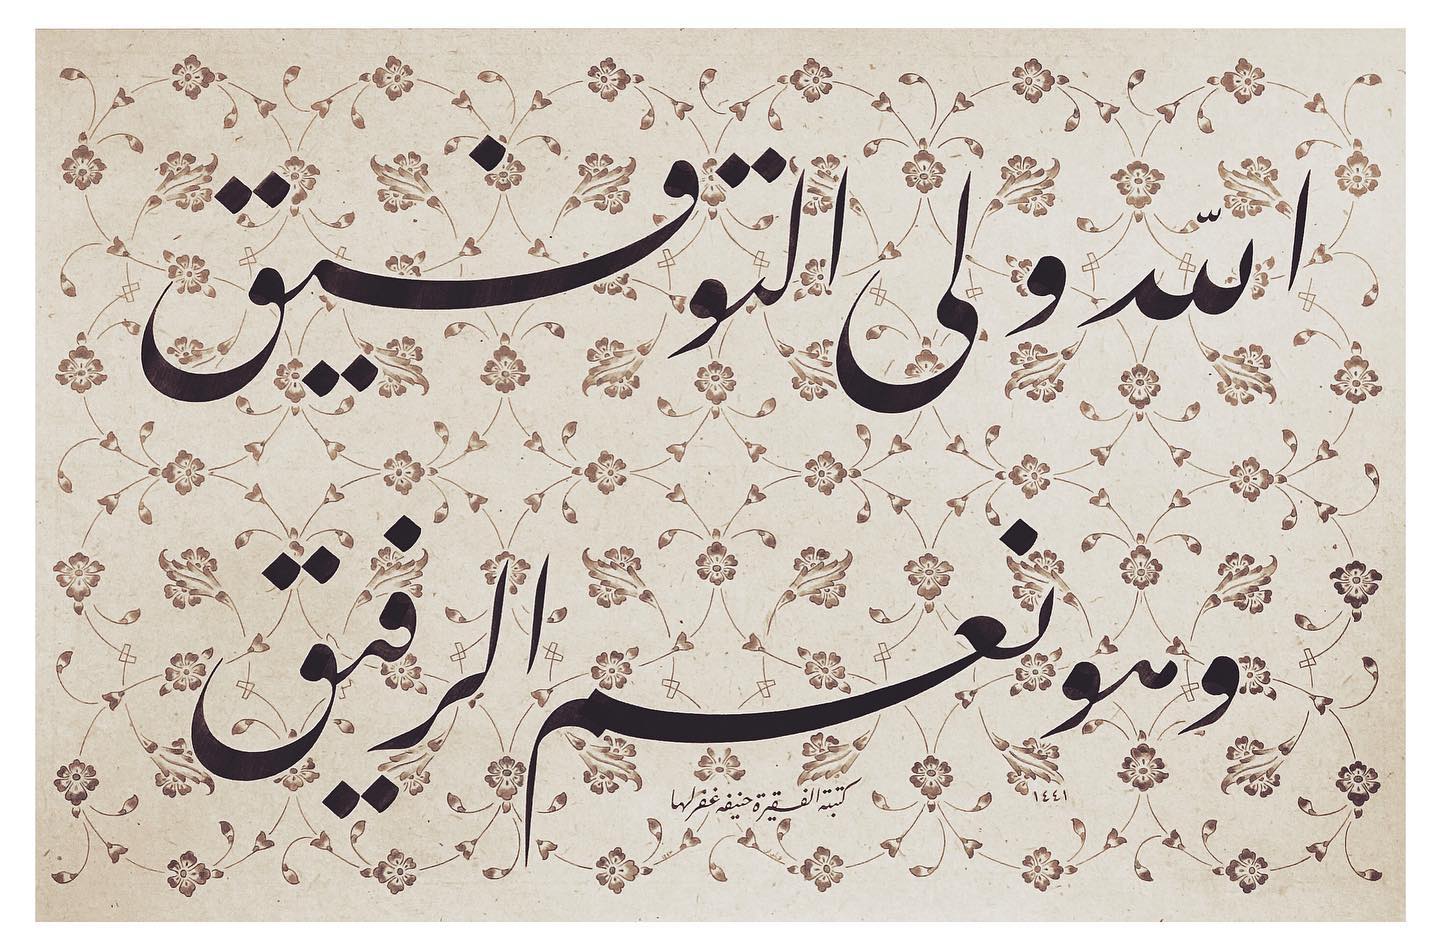 الله ولی التوفیق
وهو نعم الرفیق
كتبته الفقيرة حنيفه غفر لها
١٤٤١